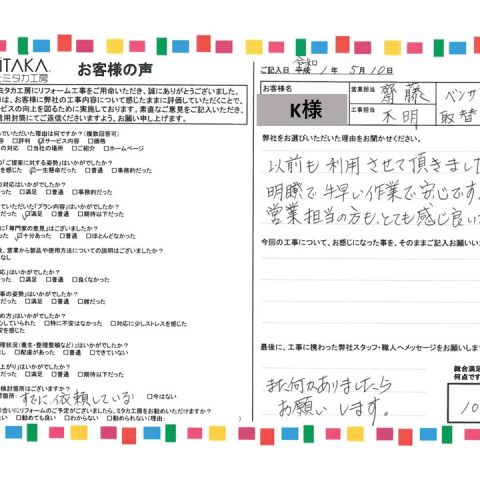 MITAKA
ミタカ工房
お客様の声
ミタカ工房にリフォーム工事をご用命いただき、誠にありがとうございました。
は、お客様に弊社の工事内容について感じたままに評価していただくことで、
ビスの向上を図るために実施しております。素直なご意見をご記入いただき、
信用封筒にてご返信くださいますよう、お願い申し上げます。
でいただいた理由は何ですか?(複数回答可)
容 □評判 □サービス内容 □価格
の対応 □当社の場所 □ご紹介 □ホームページ
の「ご提案に対する姿勢」はいかがでしたか?
を感じた □一生懸命だった □普通 □事務的だった
の対応はいかがでしたか?
だった □満足 □普通 □事務的だった
ていただいた「プラン内容」はいかがでしたか?
だった □満足 □期待以下だった
に「専門家の意見」はございましたか?
った □十分あった □普通 □ほとんどなかった
後、営業から製品や使用方法についての説明はございましたか?
なし
応」はいかがでしたか?
だった □満足 □普通 □良くなかった
事の姿勢」はいかがでしたか?
だった □満足 □普通 □雑だった
め方」はいかがでしたか?
心していられた □特に不安はなかった □対応に少しストレスを感じた
理状況(養生・整理整頓など)」はいかがでしたか?
なし □配慮があった □できていない
上がり」はいかがでしたか?
だった □満足 □普通 □期待以下だった
検討箇所はございますか?
箇所: すでに依頼している □今はない
合いにリフォームのご予定がございましたら、ミタカ工房をお勧めいただけますか?
たい □勧めても良い □わからない □勧められない(理由: )
ご記入日 平成 令和 1年 5月10日
お客様名
K様
営業担当 齋藤
工事担当 木明
ベンザ
取替
弊社をお選びいただいた理由をお聞かせください。
以前も利用させて頂きました
明瞭で早い作業で安心です。
営業担当の方も、とても感じ良い
今回の工事について、お感じになった事を、そのままご記入お願いい
最後に、工事に携わった弊社スタッフ・職人へメッセージをお願いします
また何かありましたら
お願いします。
総合満足
何点です
10